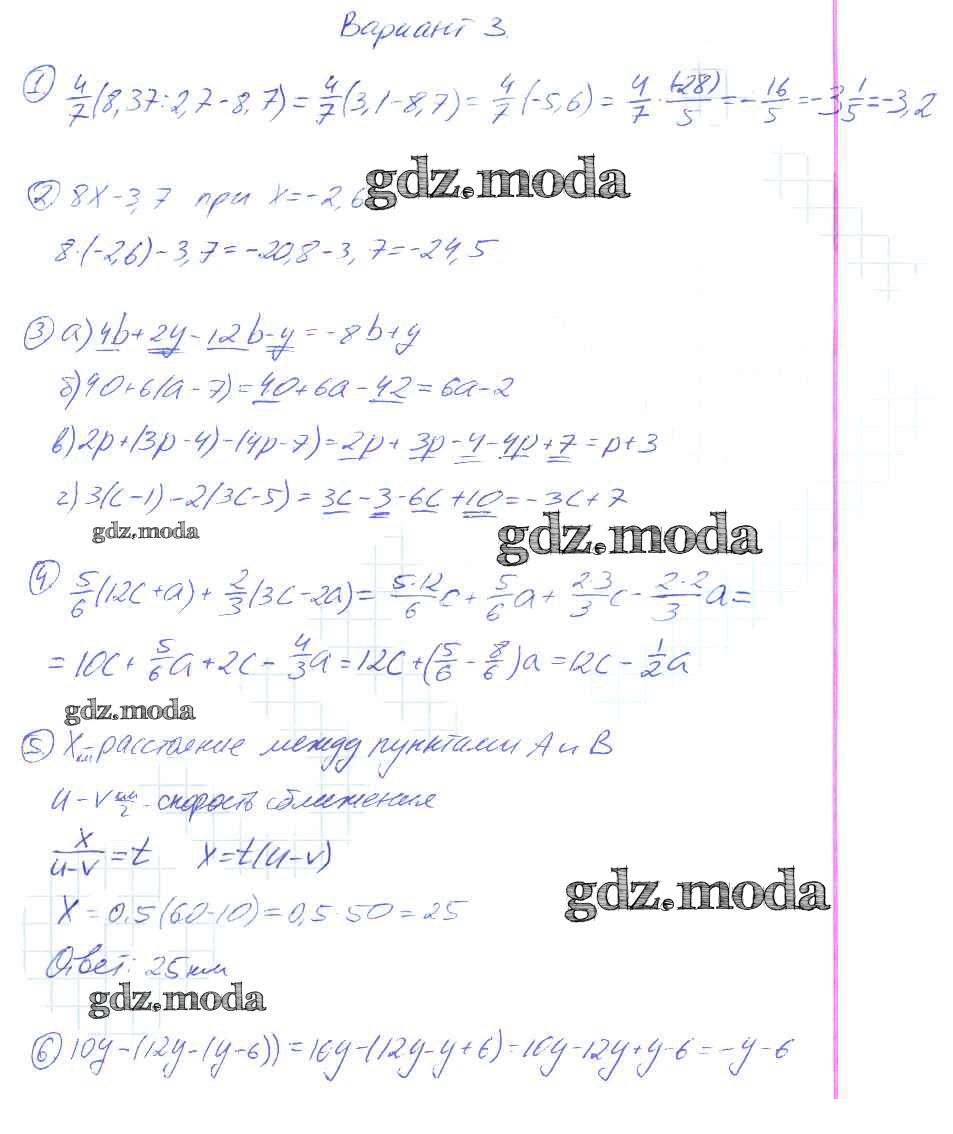 Вариант 3.
1) 4/7(8,37:2,7-8,7)=4/7(3,1-8,7)=4/7(-5,6)=4/7·(-28)/5=-16/5=-3 1/5=-3,2
gdz.moda
2) 8x-3,7 при x=-2,6
8·(-2,6)-3,7=-20,8-3,7=-24,5
3) а) 4b+2y-12b-y=-8b+y
б) 40+6(a-7)=40+6a-42=6a-2
в) 2p+(3p-4)-(4p-7)=2p+3p-4-4p+7=p+3
г) 3(c-1)-2(3c-5)=3c-3-6c+10=-3c+7
gdz.moda gdz.moda
4) 5/6(12c+a)+2/3(3c-2a)=5·12/6c+5/6a+2·3/3c-2·2/3a=
=10c+5/6a+2c-4/3a=12c+(5/6-8/6)a=12c-1/2a
gdz.moda
5) x км - расстояние между пунктами А и В
u-v км/ч - скорость сближения
x/u-v=t x=t(u-v)
gdz.moda
x=0.5(60-10)=0,5·50=25
Ответ: 25 км
gdz.moda
6) 10y-(12y-(y-6))=10y-(12y-y+6)=10y-12y+y-6=-y-6